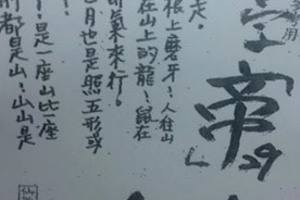 帝」29
走。
根上磨牙、人住山
在山上的龍、鼠在
氣來行。
月也是照五形或
、是一座山比一座
前都是山、山山是